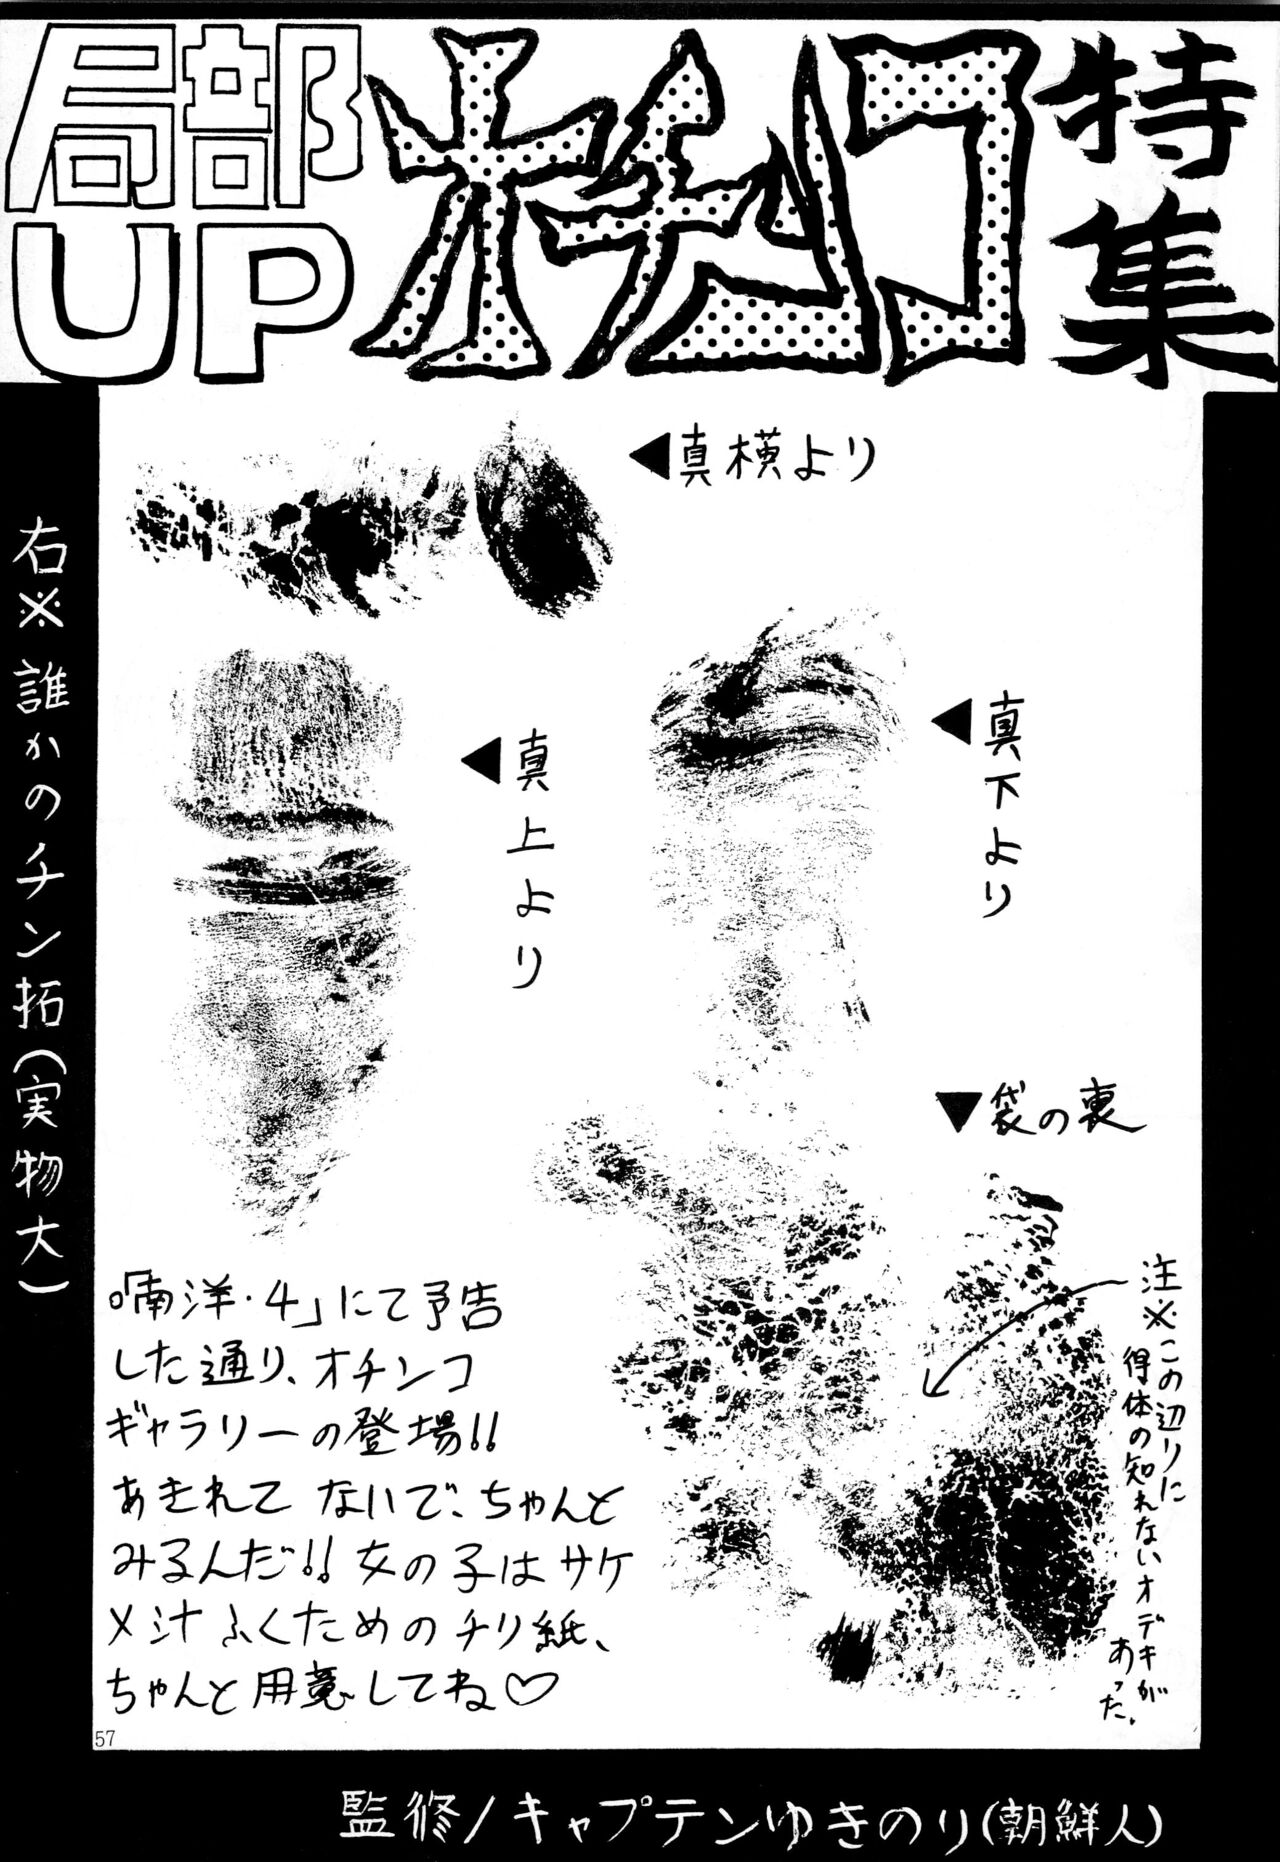 局部UP
オチンコ
特集
◀真横より
◀真上より
◀真下より
▼袋の裏
注※この辺りに
得体の知れないオデキが
あった。
右※誰かのチン拓(実物大)
「喃洋・4」にて予告
した通り、オチンコ
ギャラリーの登場!!
あきれてないで、ちゃんと
みるんだ!!女の子はサケ
メ汁ふくためのチリ紙、
ちゃんと用意してね♡
57
監修/キャプテンゆきのり(朝鮮人)